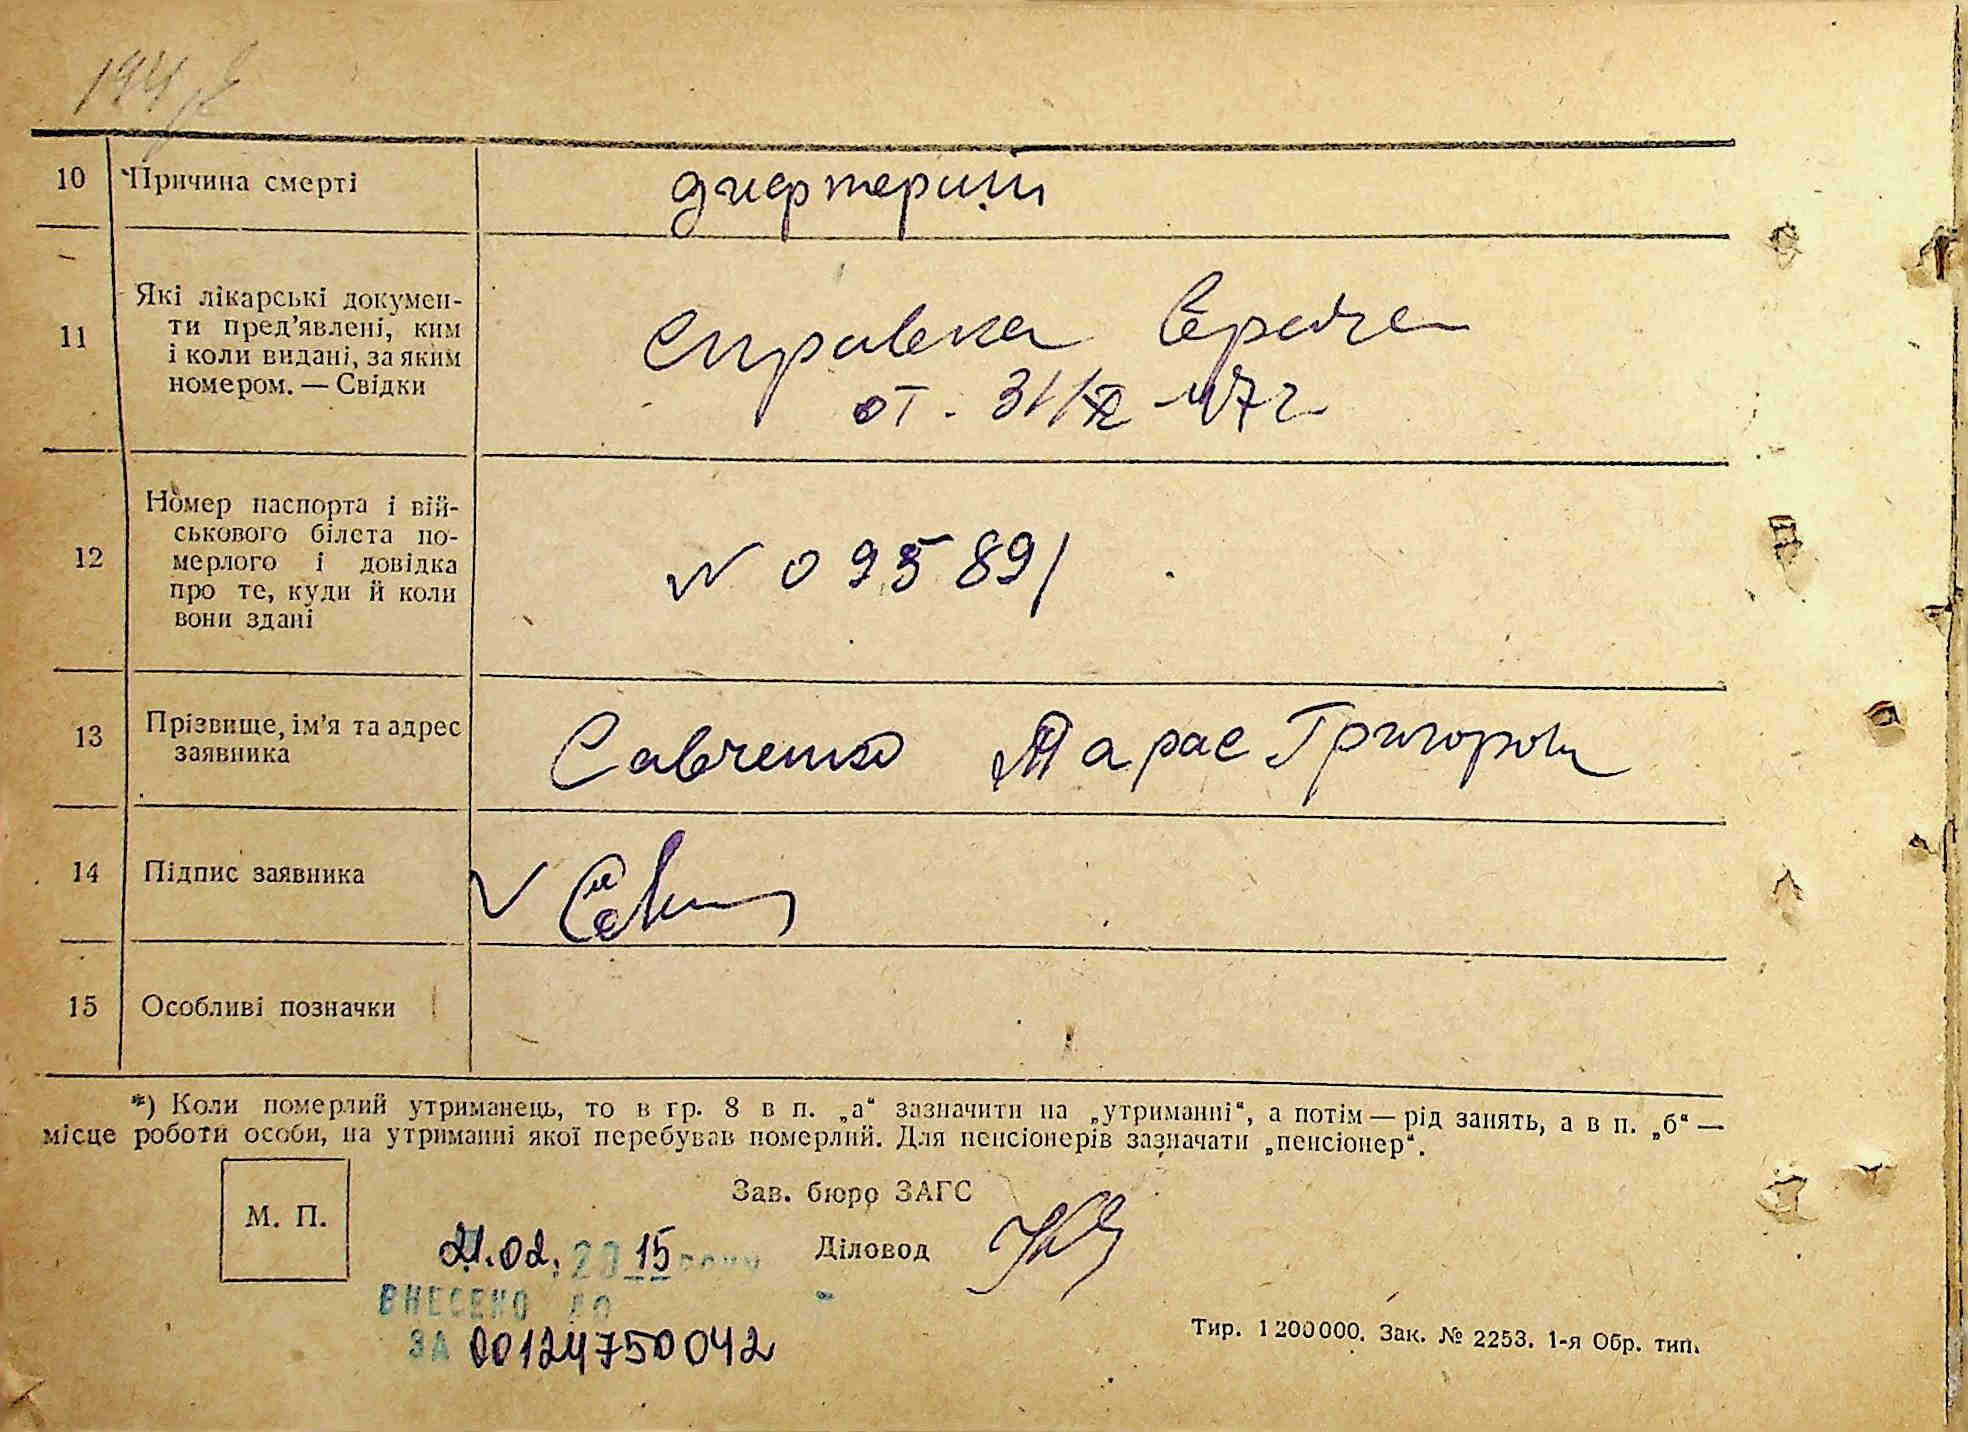 10 Причина смерті дифтерит
11 Які лікарські докумен-
ти пред'явлені, ким
і коли видані, за яким
номером. — Свідки
Справка Врача
от. 31/XII-47г
12 Номер паспорта і вій-
ськового білета по-
мерлого і довідка
про те, куди й коли
вони здані
N 095891
13 Прізвище, ім'я та адрес
заявника
Савченко Тарас Григоров
14 Підпис заявника
15 Особливі позначки
*) Коли померлий утриманець, то в гр. 8 в п. „а“ зазначити на „утриманні“, а потім — рід занять, а в п. „б“ —
місце роботи особи, на утриманні якої перебував померлий. Для пенсіонерів зазначати „пенсіонер“.
М. П.
Зав. бюро ЗАГС
21.02.2015 року
Діловод
ВНЕСЕНО ДО
ЗА 00124750042
Тир. 1200000. Зак. № 2253. 1-я Обр. тип.